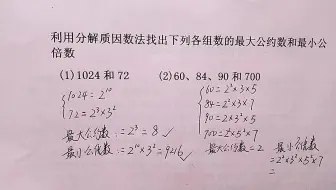 利用分解质因数法找出下列各组数的最大公约数和最小公
倍数
(1)1024 和 72
(2)60、84、90 和 700
1024=2¹⁰
72=2³×3²
最大公约数:=2³=8 ✓
最小公倍数:=2¹⁰×3²=9216 ✓
60=2²×3×5
84=2²×3×7
90=2×3²×5
700=2²×5²×7
最大公约数=2
最小公倍数
=2²×3²×5²×7
=